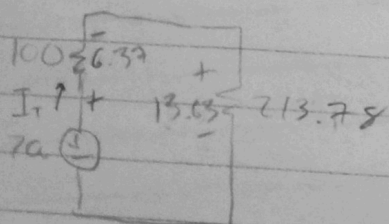 -
100 6.37
+
I₁ ↑ +
13.63 213.78
-
20